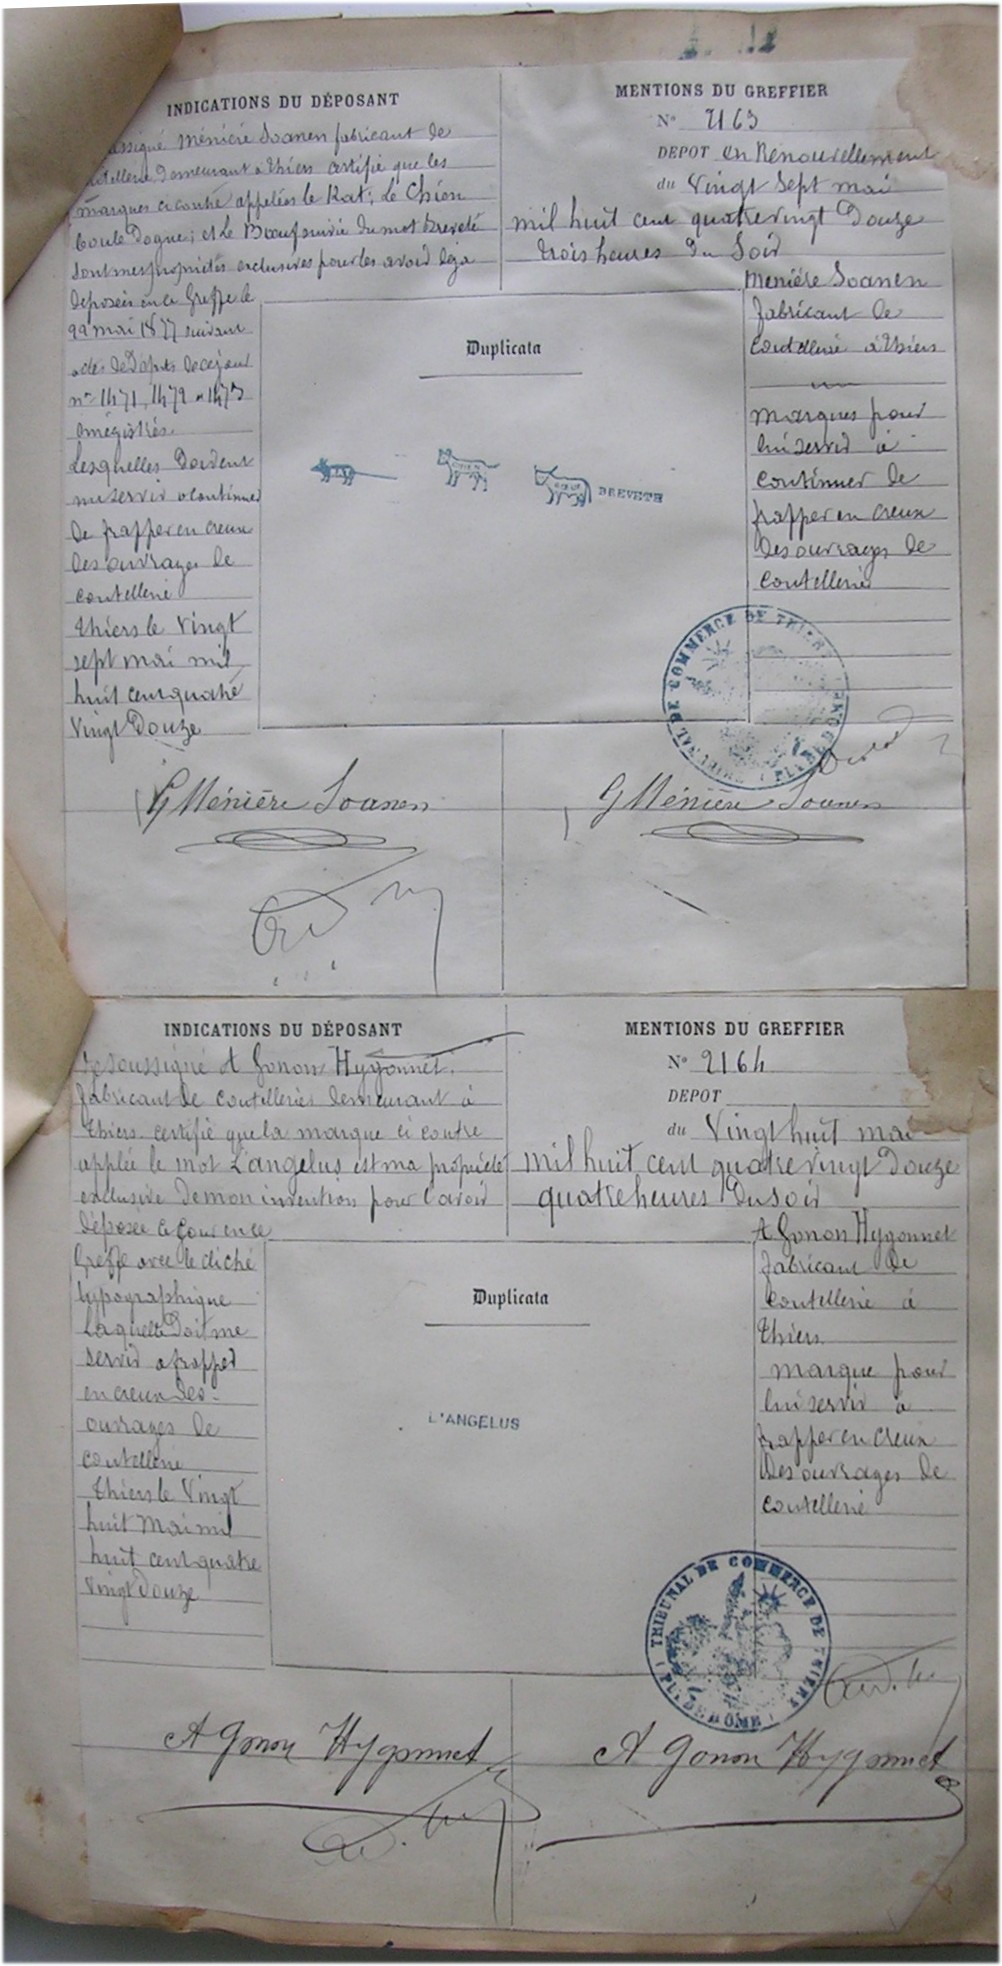 INDICATIONS DU DÉPOSANT
Ménière Soanen fabricant de
demeurant à Thiers certifie que les
marques ci contre appelées le Rat; Le Chien
boule Dogue; et Le Boeuf suivie du mot breveté
sont mes propriétés exclusives pour les avoir déja
déposées en ce Greffe le
22 mai 1877 suivant
actes de Dépots de ce jour
nos 1471, 1472 et 1473
enregistrés.
Lesquelles doivent
me servir a continuer
de frapper en creux
des ouvrages de
coutellerie
Thiers le vingt
sept mai mil
huit cent quatre
vingt Douze
MENTIONS DU GREFFIER
N° 2163
DEPOT en Renouvellement
du Vingt Sept mai
mil huit cent quatre vingt Douze
trois heures du Soir
Menière Soanen
fabricant de
coutellerie à Thiers
marques pour
lui servir à
continuer de
frapper en creux
des ouvrages de
coutellerie
Duplicata
RAT
CHIEN
BOEUF
BREVETE
TRIBUNAL DE COMMERCE DE THIERS
G Ménière Soanen
G Ménière Soanen
INDICATIONS DU DÉPOSANT
Je soussigné A Gonon Hygonnet
fabricant de coutelleries demeurant à
Thiers certifie que la marque ci contre
applée le mot L'angelus est ma propriété
exclusive de mon invention pour l'avoir
déposée ce jour en ce
Greffe avec le cliché
typographique
Laquelle Doit me
servir a frapper
en creux des
ouvrages de
coutellerie
Thiers le Vingt
huit Mai mil
huit cent quatre
vingt douze
MENTIONS DU GREFFIER
N° 2164
DEPOT
du Vingt huit mai
mil huit cent quatre vingt Douze
quatre heures du soir
A Gonon Hygonnet
fabricant de
coutellerie à
Thiers
marque pour
lui servir a
frapper en creux
des ouvrages de
coutellerie
Duplicata
L'ANGELUS
TRIBUNAL DE COMMERCE DE THIERS
(PUY DE DOME)
A Gonon Hygonnet
A Gonon Hygonnet